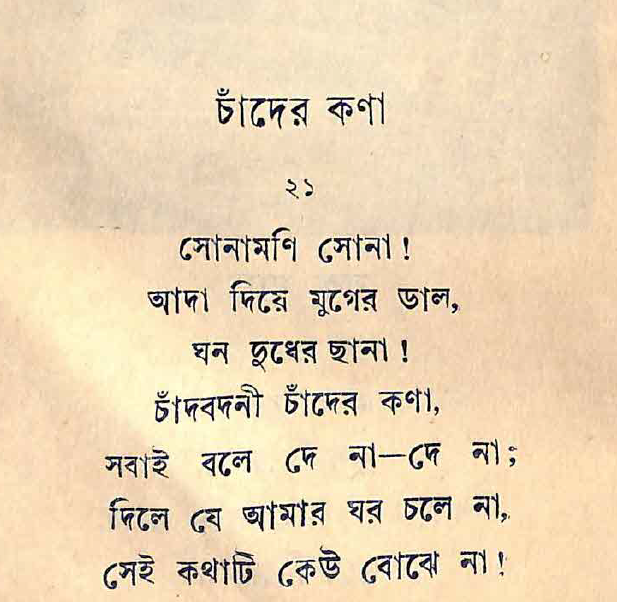 চাঁদের কণা
২১
সোনামণি সোনা !
আদা দিয়ে মুগের ডাল,
ঘন দুধের ছানা !
চাঁদবদনী চাঁদের কণা,
সবাই বলে দে না—দে না ;
দিলে যে আমার ঘর চলে না,
সেই কথাটি কেউ বোঝে না !